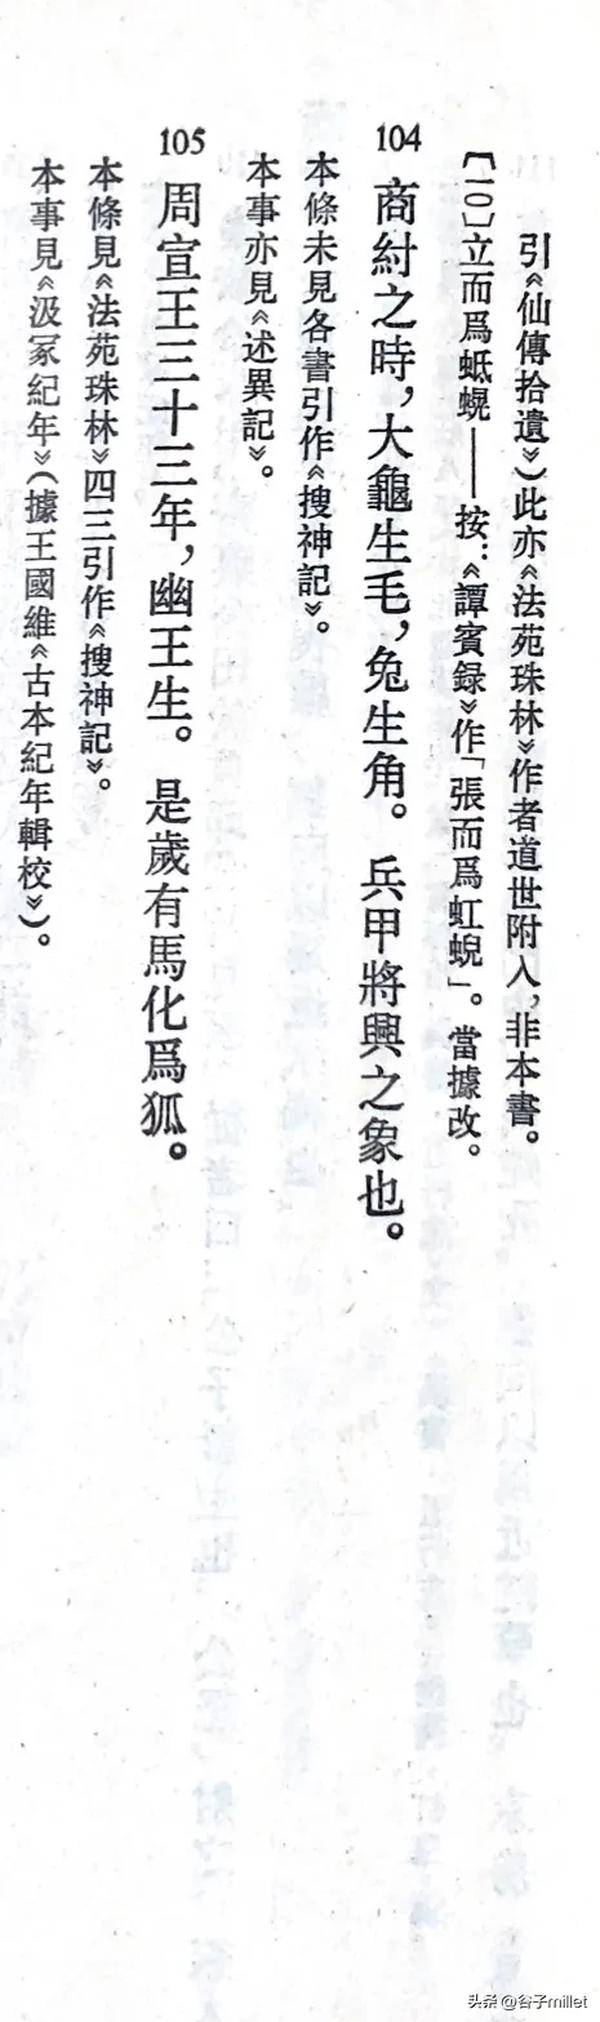 引《仙傳拾遺》)此亦《法苑珠林》作者道世附入,非本書。
〔一〇〕立而爲蚳蜺——按:《譚賓録》作「張而爲虹蜺」。當據改。
104 商紂之時,大龜生毛,兔生角。 兵甲將興之象也。
本條未見各書引作《搜神記》。
本事亦見《述異記》。
105 周宣王三十三年,幽王生。 是歲有馬化爲狐。
本條見《法苑珠林》四三引作《搜神記》。
本事見《汲冢紀年》(據王國維《古本紀年輯校》)。
头条@谷子millet